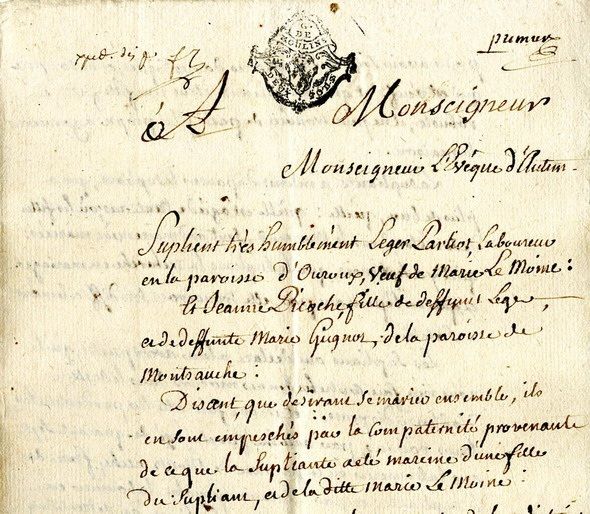 G. DE MOULINS
DEUX SOLS
premier
A
Monseigneur
Monseigneur L'Evêque d'Autun
Suplient très humblement Leger Partiot Laboureur
en la paroisse d'Ouroux, veuf de Marie Le Moine :
Et Jeanne Picoche, fille de deffunt Leger,
et de deffunte Marie Gugnot, de la paroisse de
Montsauche :
Disent, que desirant se marier ensemble, ils
en sont empeschés par la compaternité provenante
de ce que la Supliante a été mareine d'une fille
du Supliant, et de la ditte Marie Le Moine :